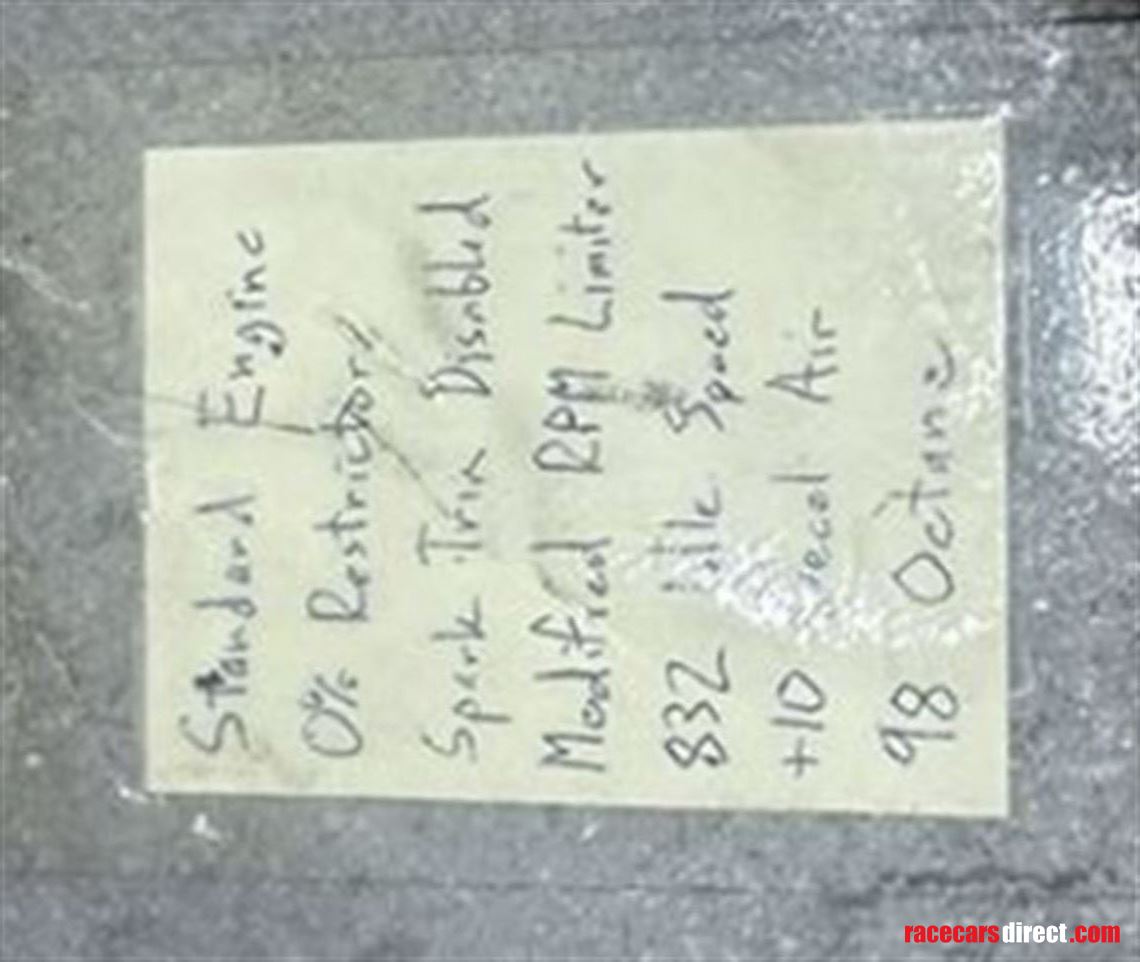 Standard Engine
0% Restrictor
Spark Trim Disabled
Modified RPM Limiter
832 Idle Speed
+10 Air
98 Octane
racecarsdirect.com